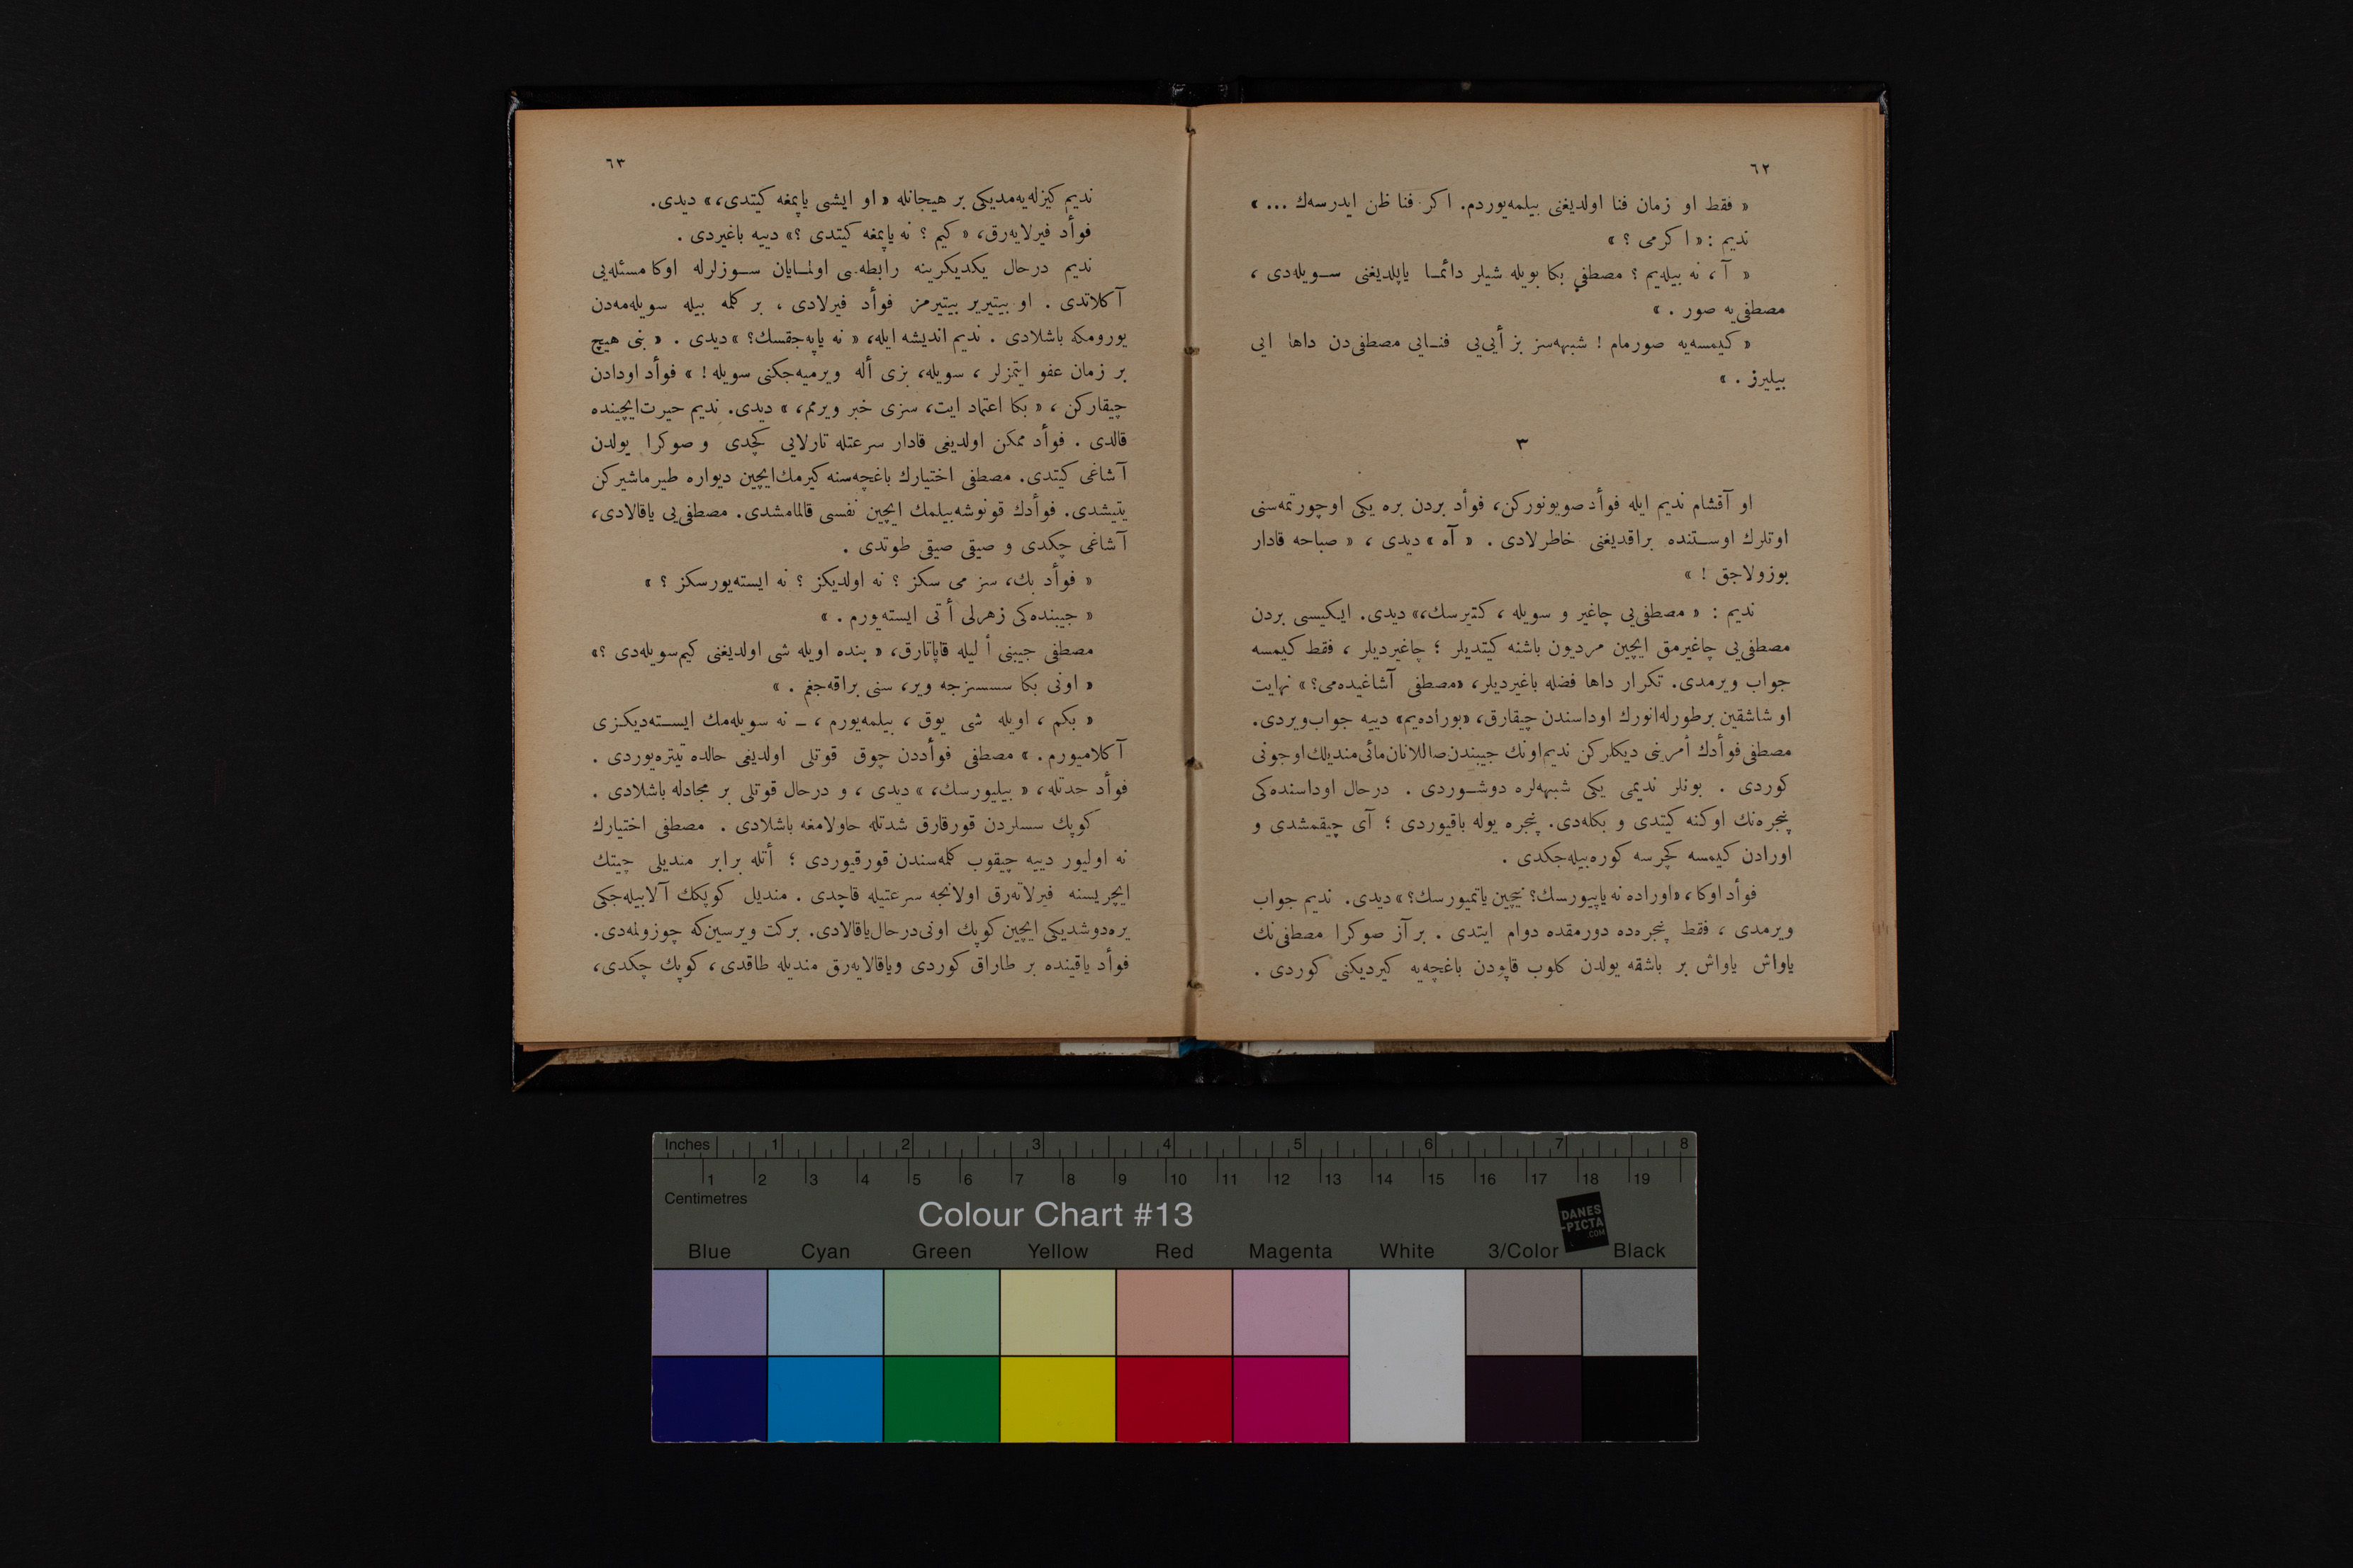 ٦٢
« فقط او زمان فنا اولدیغنی بیلمه‌یوردم. اكر فنا ظن ایدرسه‌ك ... »
ندیم : « اكرمی ؟ »
« آ ، نه بیله‌یم ؟ مصطفی بكا بویله شیلر دائمـا یاپلدیغنی سـویله‌دی ،
مصطفی‌یه صور . »
« كیمسه‌یه صورمام ! شبهه‌سز بز أیی‌یی فنـایی مصطفی‌دن داها ایی
بیلیرز . »
٣
او آقشام ندیم ایله فوأد صویونوركن، فوأد بردن بره یكی اوچورتمه‌سنی
اوتلرك اوسـتنده براقدیغنی خاطرلادی . « آه » دیدی ، « صباحه قادار
بوزولاجق ! »
ندیم : « مصطفی‌یی چاغیر و سویله ، كتیرسك،» دیدی. ایكیسی بردن
مصطفی‌یی چاغیرمق ایچین مردیون باشنه كیتدیلر ؛ چاغیردیلر ، فقط كیمسه
جواب ویرمدی. تكرار داها فضله باغیردیلر، «مصطفی آشاغیده‌می؟» نهایت
او شاشقین برطورله‌انورك اوداسندن چیقارق، «بوراده‌یم» دییه جواب‌ویردی.
مصطفی فوأدك أمرینی دیكلركن ندیم‌اونك جیبندن‌صاللانان‌مائی‌مندیلك‌اوجونی
كوردی . بونلر ندیمی یكی شبهه‌لره دوشـوردی . درحال اوداسنده‌كی
پنجره‌نك اوكنه كیتدی و بكله‌دی. پنجره یوله باقیوردی ؛ آی چیقمشدی و
اورادن كیمسه كچرسه كوره‌بیله‌جكدی .
فوأد اوكا ، «اوراده نه یاپیورسك؟ نیچین یاتمیورسك؟» دیدی. ندیم جواب
ویرمدی ، فقط پنجره‌ده دورمقده دوام ایتدی . بر آز صوكرا مصطفی‌نك
یاواش یاواش بر باشقه یولدن كلوب قاپودن باغچه‌یه كیردیكنی كوردی .
٦٣
ندیم كیزله‌یه‌مدیكی بر هیجانله « او ایشی یاپمغه كیتدی، » دیدی.
فوأد فیرلایه‌رق، « كیم ؟ نه یاپمغه كیتدی ؟» دییه باغیردی .
ندیم درحال یكدیكرینه رابطه‌سی اولمـایان سـوزلرله اوكا مسئله‌یی
آكلاتدی . او بیتیریر بیتیرمز فوأد فیرلادی ، بر كلمه بیله سویله‌مه‌دن
یورومكه باشلادی . ندیم اندیشه ایله، « نه یاپه‌جقسك؟ » دیدی . « بنی هیچ
بر زمان عفو ایتمزلر ، سویله، بزی أله ویرمیه‌جكنی سویله ! » فوأد اودادن
چیقاركن ، « بكا اعتماد ایت، سزی خبر ویرمم، » دیدی. ندیم حیرت‌ایچینده
قالدی . فوأد ممكن اولدیغی قادار سرعتله تارلایی كچدی و صوكرا یولدن
آشاغی كیتدی. مصطفی اختیارك باغچه‌سنه كیرمك‌ایچین دیواره طیرماشیركن
یتیشدی. فوأدك قونوشه‌بیلمك ایچین نفسی قالمامشدی. مصطفی‌یی یاقالادی،
آشاغی چكدی و صیقی صیقی طوتدی .
« فوأد بك، سز می سكز ؟ نه اولدیكز ؟ نه ایسته‌یورسكز ؟ »
« جیبنده‌كی زهرلی أتی ایسته‌یورم . »
مصطفی جیبنی أ لیله قاپاتارق، « بنده اویله شی اولدیغنی كیم‌سویله‌دی ؟»
« اونی بكا سسسزجه ویر، سنی براقه‌جغم . »
« بكم ، اویله شی یوق ، بیلمه‌یورم ، ـ نه سویله‌مك ایسـته‌دیكـزی
آكلامیورم . » مصطفی فوأددن چوق قوتلی اولدیغی حالده تیتره‌یوردی .
فوأد حدتله، « بیلیورسك، » دیدی ، و درحال قوتلی بر مجادله باشلادی .
كوپك سسلردن قورقارق شدتله حاولامغه باشلادی . مصطفی اختیارك
نه اولیور دییه چیقوب كلمه‌سندن قورقیوردی ؛ أتله برابر مندیلی چیتك
ایچریسنه فیرلاته‌رق اولانجه سرعتیله قاچدی . مندیل كوپكك آلابیله‌جكی
یره‌دوشدیكی ایچین كوپك اونی‌درحال‌یاقالادی. بركت ویرسین‌كه چوزولمه‌دی.
فوأد یاقینده بر طاراق كوردی ویاقالایه‌رق مندیله طاقدی، كوپك چكدی،
Inches 1 2 3 4 5 6 7 8
1 2 3 4 5 6 7 8 9 10 11 12 13 14 15 16 17 18 19
Centimetres
Colour Chart #13
DANES
-PICTA
.COM
Blue Cyan Green Yellow Red Magenta White 3/Color Black